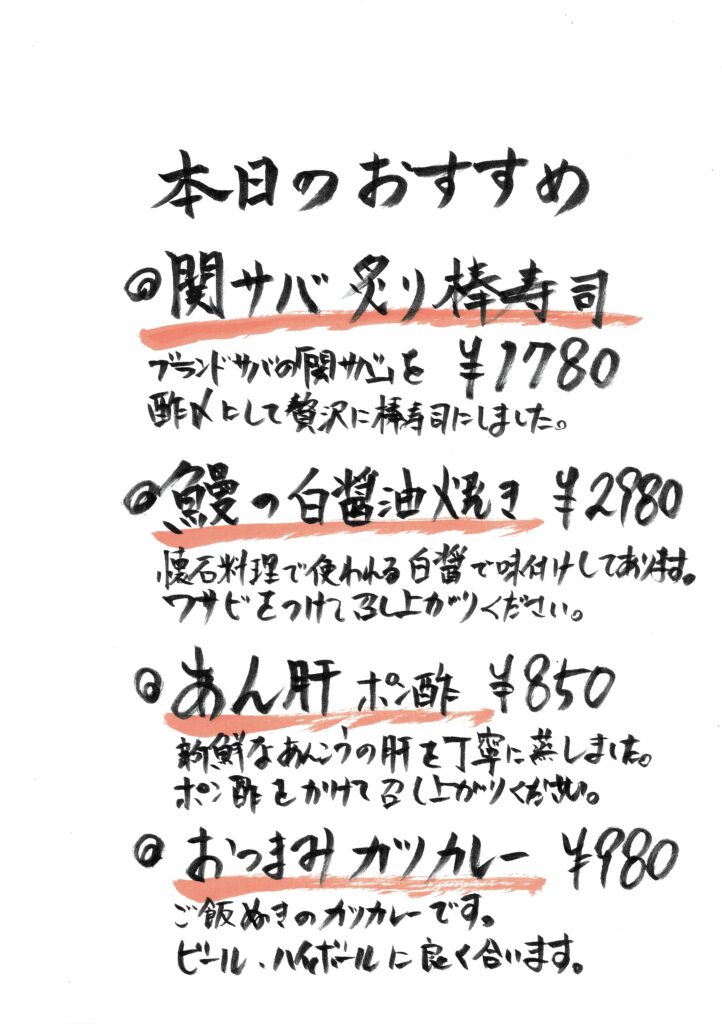 本日のおすすめ
◎関サバ 炙り棒寿司
ブランドサバの「関サバ」を ¥1780
酢〆にして贅沢に棒寿司にしました。
◎鰻の白醤油焼き ¥2980
懐石料理で使われる白醤で味付けしております。
ワサビをつけて召し上がりください。
◎あん肝 ポン酢 ¥850
新鮮なあんこうの肝を丁寧に蒸しました。
ポン酢をかけて召し上がりください。
◎おつまみカツカレー ¥980
ご飯ぬきのカツカレーです。
ビール、ハイボールに良く合います。